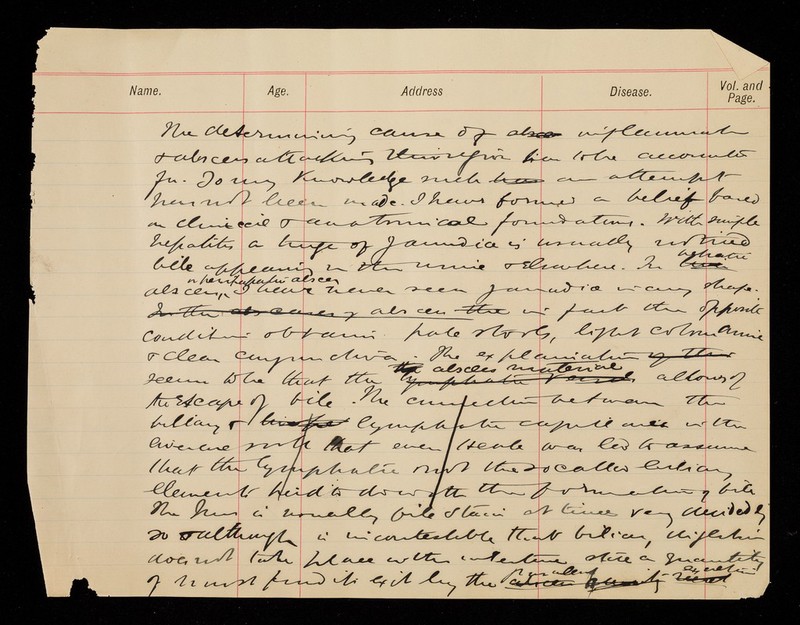 Name. Age. Address Disease. Vol. and Page.
The determining cause of inflammation
& abscess attacking this region has to be accounted
for. To my knowledge such has an attempt
has not been made. I have formed a belief based
on clinical & anatomical foundations. With simple
hepatitis a tinge of jaundice is usually noticed
bile appearing in the urine & elsewhere. In hepatic
or perihepatic abscess
abscess, I have never seen jaundice in any shape.
In the abscess in fact the opposite
condition obtains pale stools, light colour urine
& clean conjunctiva. The explanation of this
the abscess material
seems to be that the lymphatic vessels allows of
the escape of bile. The connection between the
biliary & lymphatic capillaries in the
liver are such that even Heale was led to assume
that the lymphatic & not the so called biliary
elements had to do with the formation of bile
The pus is usually bile stain at times very decidedly
so & although is incontestible that biliary
does not take place in the intestine still a quantity
of it must find its exit by the purulent